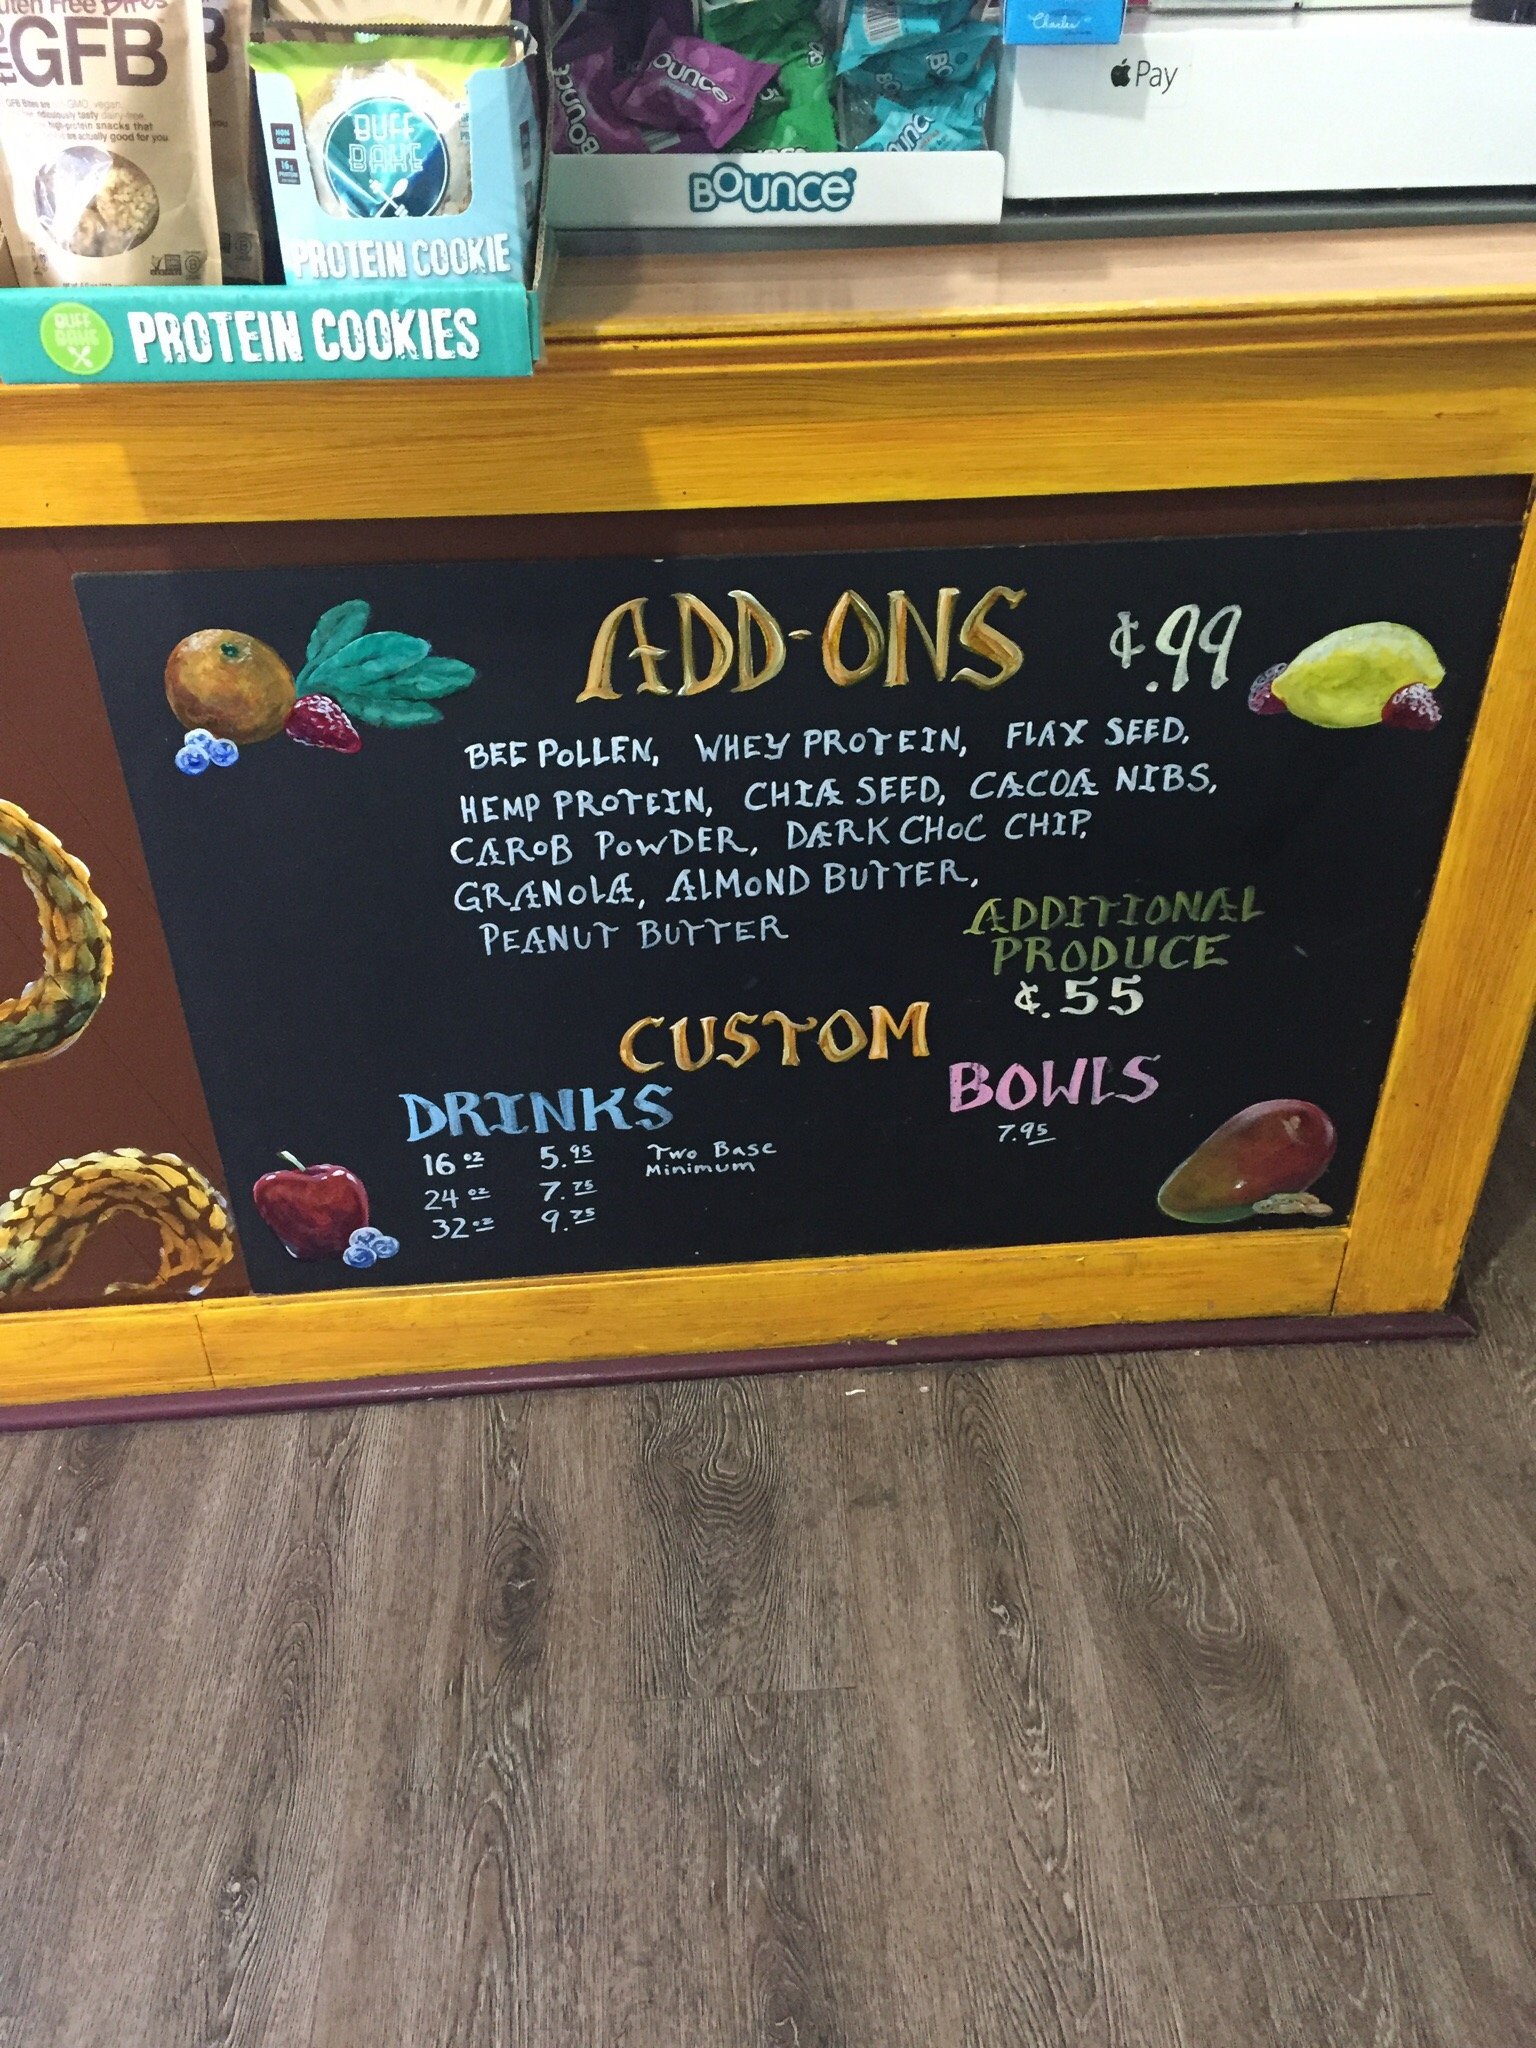 Gluten Free Bites
the GFB
high-protein snacks that
are actually good for you
BUFF
BAKE
PROTEIN COOKIE
BUFF
BAKE
PROTEIN COOKIES
BOUNCE
Bounce
Bounce
Bounce
Charles
Pay
ADD-ONS ¢.99
BEE POLLEN, WHEY PROTEIN, FLAX SEED,
HEMP PROTEIN, CHIA SEED, CACOA NIBS,
CAROB POWDER, DARK CHOC CHIP,
GRANOLA, ALMOND BUTTER,
PEANUT BUTTER
ADDITIONAL
PRODUCE
¢.55
CUSTOM
DRINKS
16 oz 5.95 Two Base
Minimum
24 oz 7.75
32 oz 9.75
BOWLS
7.95